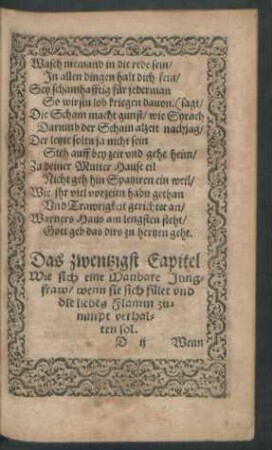 Wasch niemand in die rede sein/
In allen dingen halt dich fein/
Sey schamhafftig für jederman
So wirstu lob kriegen dauon. (sagt/
Die Scham macht gunst/ wie Syrach
Darumb der Scham alzeit nachjag/
Der letzte soltu ja nicht sein
Steh auff bey zeit vnd gehe heim/
Zu deiner Mutter Hause eil
Nicht geh hin Spatziren ein weil/
Wie jhr viel vorzeiten habn gethan
Vnd Trawrigkeit gerichtet an/
Warners Haus am lengsten steht/
Gott geb das dirs zu hertzen geht.
Das zwentzigst Capitel
Wie sich eine Manbare Jung-
fraw/ wenn sie sich fület vnd
die liebes Flamm zu-
nimpt verhal-
ten sol.
D ij Wenn